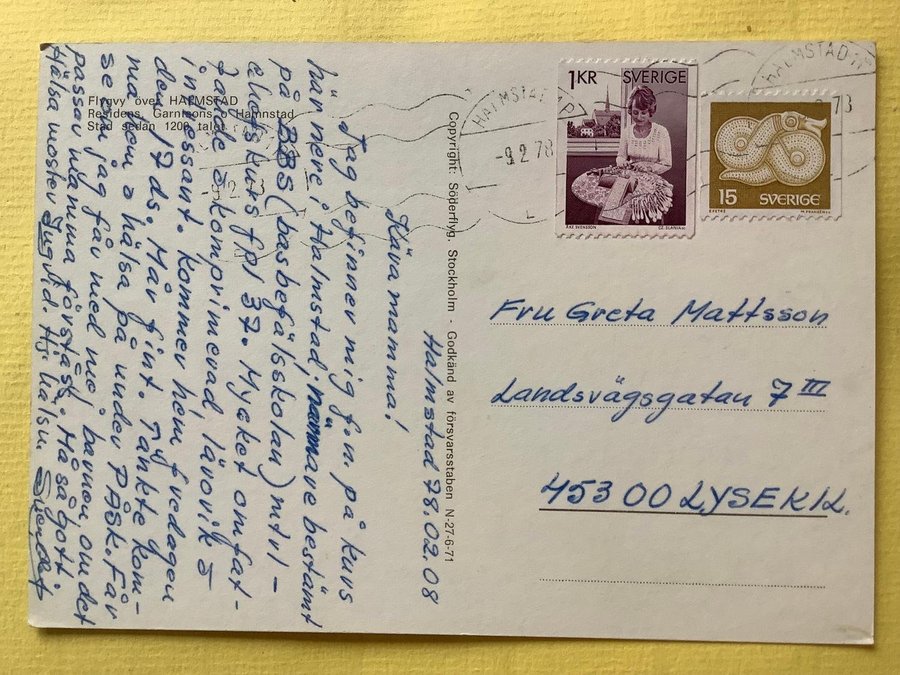 Flygvy över HALMSTAD
Residens, Garnisons, o Hamnstad
Stad sedan 1200 talet
Halmstad 78.02.08
Kära mamma!
Jag befinner mig f.n. på kurs
här nere i Halmstad, närmare bestämt
på BBS (basbefälsskolan)
fpl 37. Mycket omfat-
tande & komprimerad, lärorik &
intressant. Kommer hem fredagen
den 17 ds. Mår fint. Tänkte kom-
ma ner å hälsa på under PÅSK. Får
se om jag får med mej barnen om det
passar mamma förstås. Må så gott.
Hälsa moster Ingrid. Hj. hälsn
Copyright: Söderflyg. Stockholm - Godkänd av försvarsstaben N-27-6-71
HALMSTAD TP
-9.2.78
HALMSTAD TP
1KR SVERIGE
ÅKE SVENSSON CZ. SLANIA SC
15 SVERIGE
Fru Greta Mattsson
Landsvägsgatan 7 III
453 00 LYSEKIL.